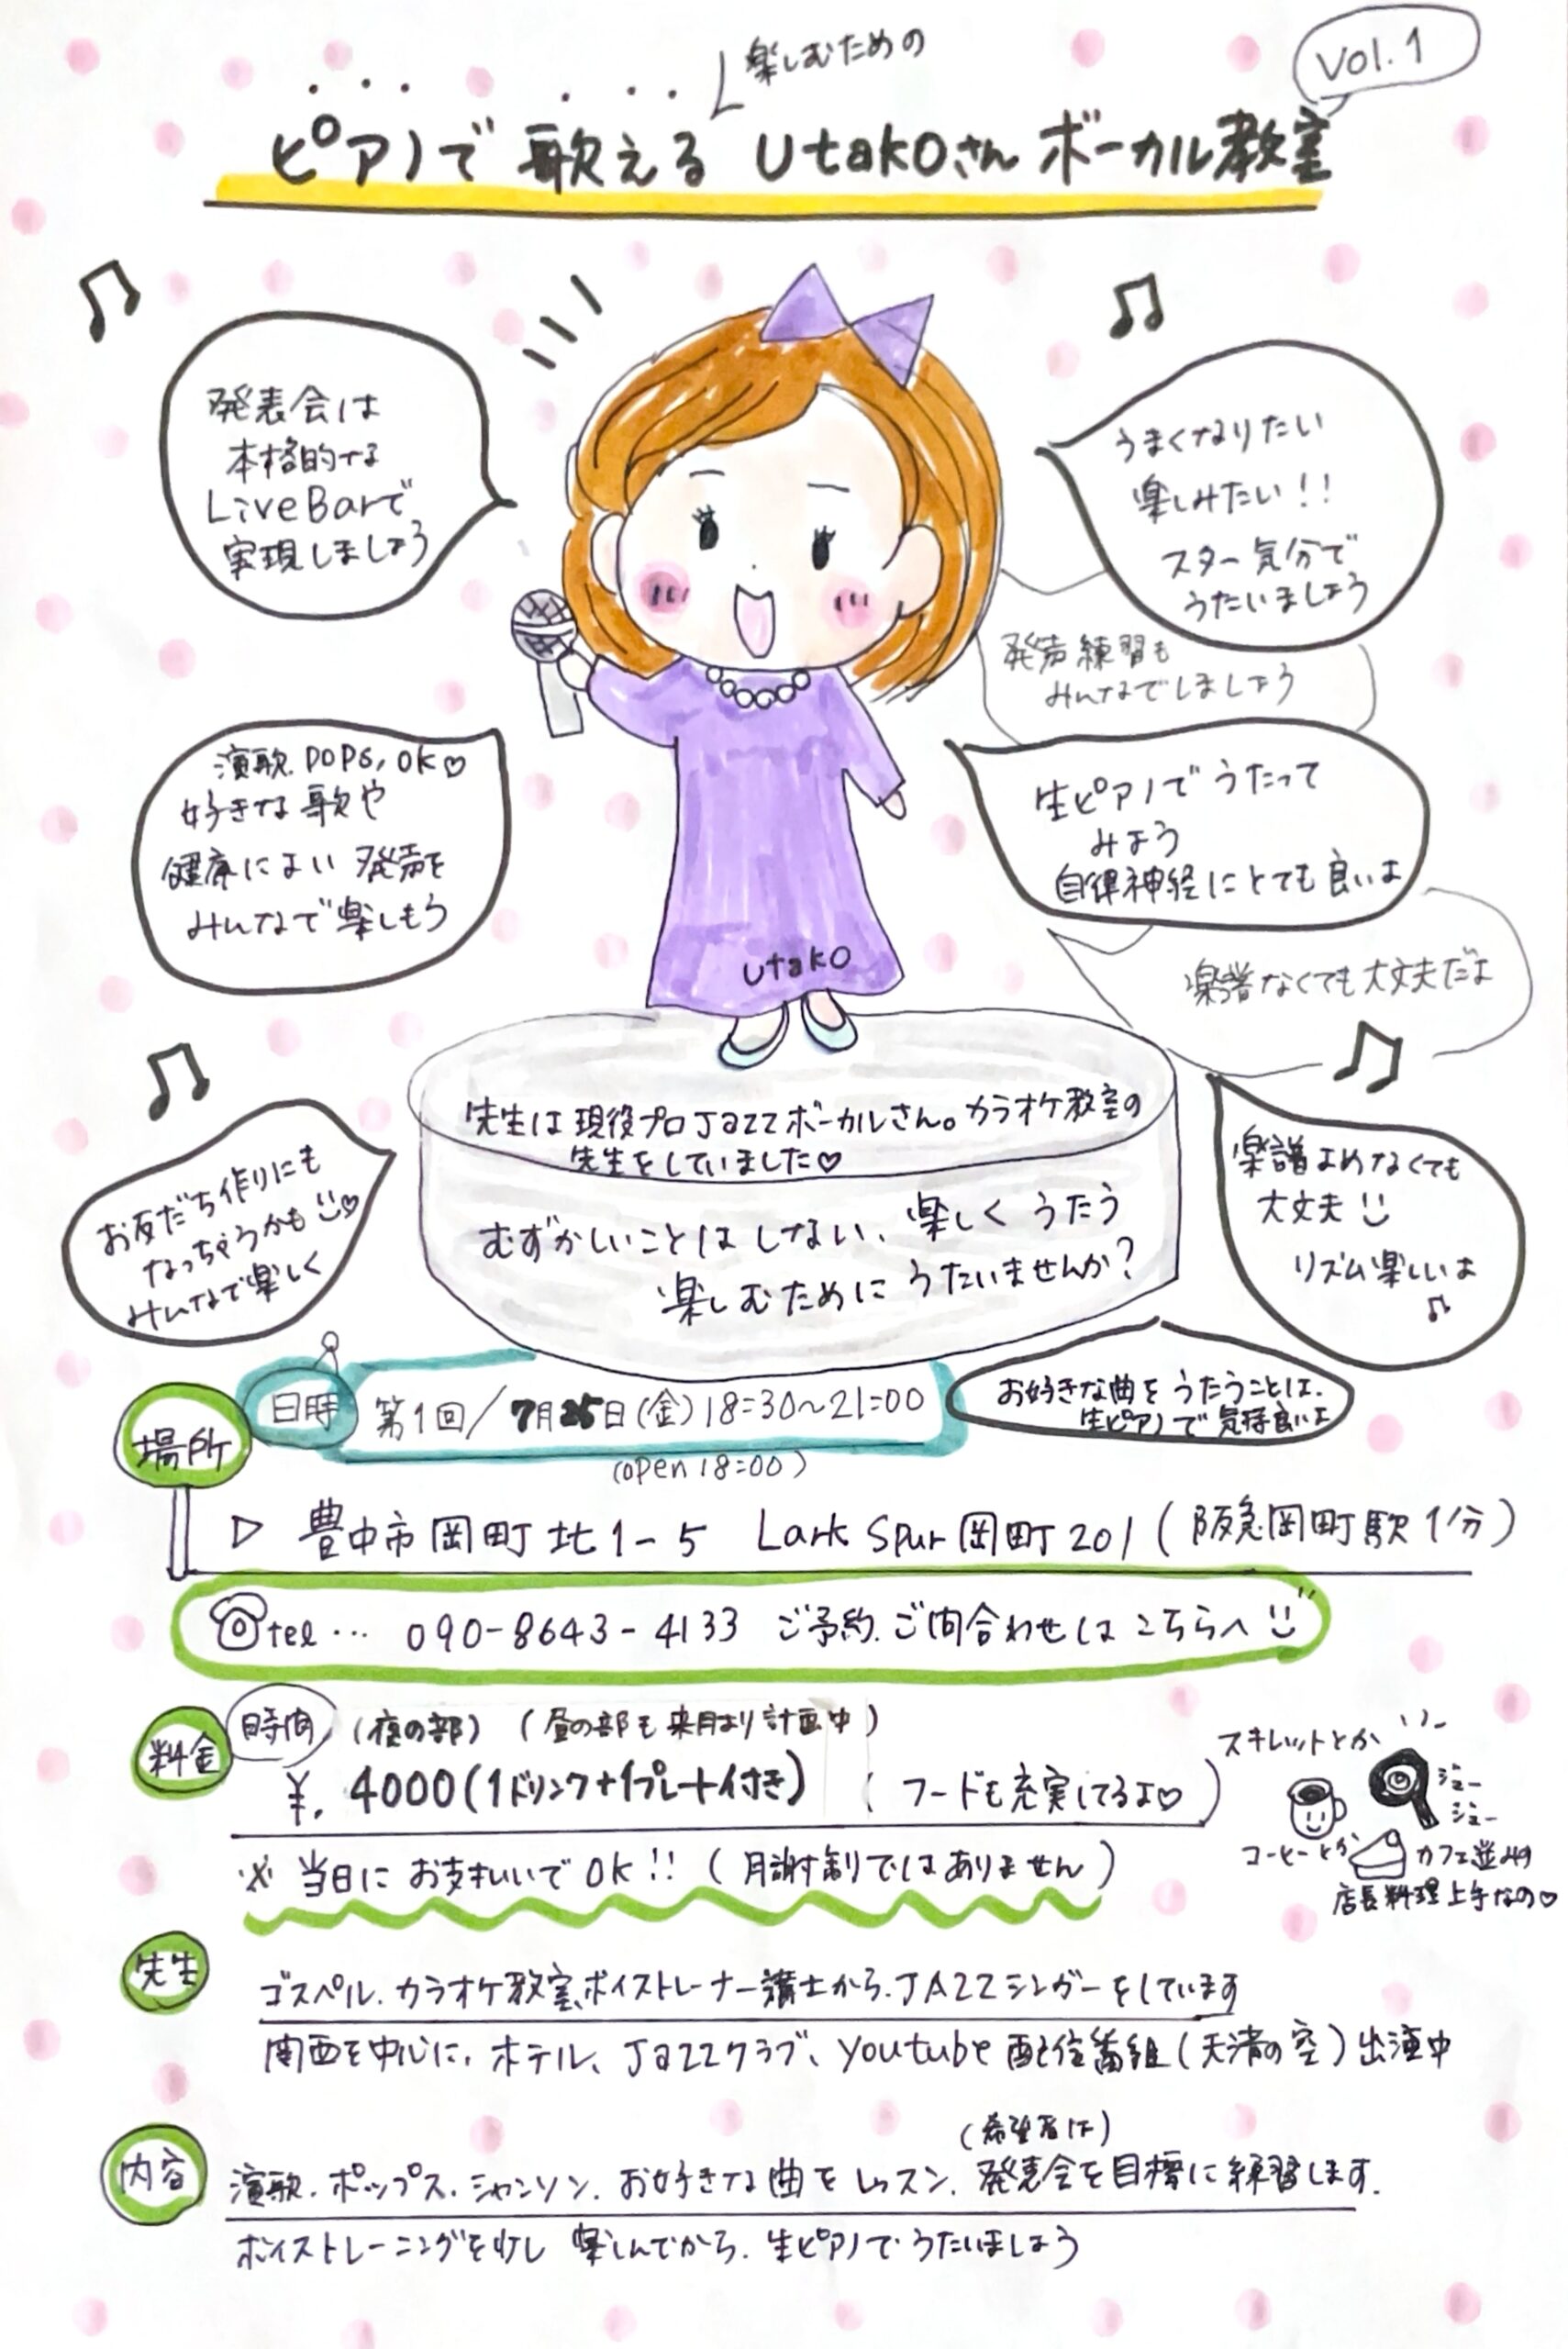 楽しむための
Vol.1
ピアノで 歌える Utakoさん ボーカル教室
発表会は
本格的な
LiveBarで
実現しましょう
うまくなりたい
楽しみたい!!
スター気分で
うたいましょう
発声練習も
みんなでしましょう
演歌.POPS,OK♡
好きな歌や
健康によい発声を
みんなで楽しもう
生ピアノでうたって
みよう
自律神経にとても良いよ
utako
楽譜なくても大丈夫だよ
先生は現役プロJazzボーカルさん。カラオケ教室の
先生をしていました♡
むずかしいことはしない、楽しくうたう
楽しむために うたいませんか?
お友だち作りにも
なっちゃうかも♡
みんなで楽しく
楽譜よめなくても
大丈夫
リズム楽しいよ
♫
お好きな曲をうたうことは、
生ピアノで気持良いよ
日時 第1回/7月25日(金)18:30~21:00
(open 18:00)
場所
▷ 豊中市岡町北1-5 Lark Spur岡町201(阪急岡町駅1分)
tel… 090-8643-4133 ご予約.ご問合わせはこちらへ
料金 時間 (夜の部) (昼の部も来月より計画中)
¥. 4000(1ドリンク+1プレート付き) (フードも充実してるよ♡)
スキレットとか
ジュー
ジュー
コーヒーとか
カフェ並み
店長料理上手なの♡
※ 当日にお支払いでOK!!(月謝制ではありません)
先生
ゴスペル.カラオケ教室、ボイストレーナー講士から.JAZZシンガーをしています
関西を中心に、ホテル、Jazzクラブ、Youtube配信番組(天満の空)出演中
内容
(希望者は)
演歌.ポップス.シャンソン.お好きな曲をレッスン.発表会を目標に練習します.
ボイストレーニングを少し 楽しんでから.生ピアノでうたいましょう